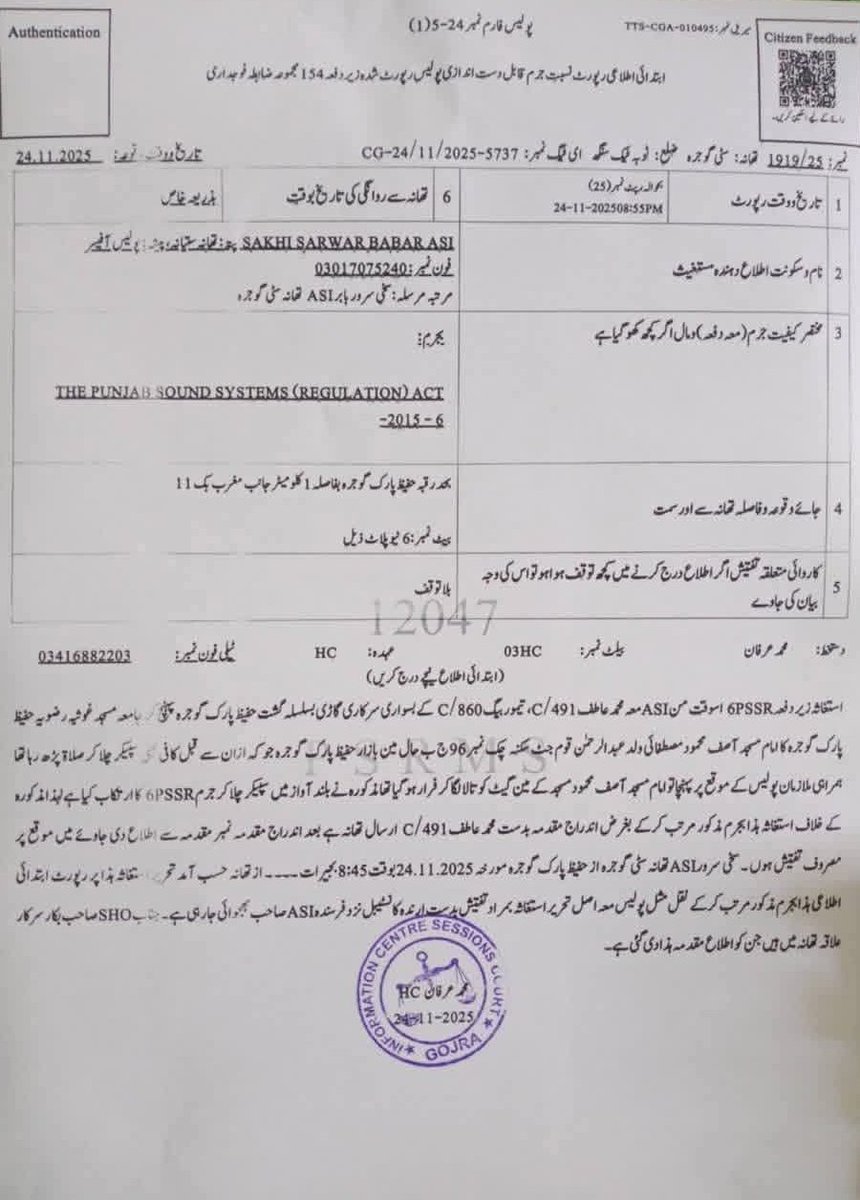 Authentication
پولیس فارم نمبر 24-5(1)
سیریل نمبر: TTS-CGA-010495
Citizen Feedback
رائے کے لیے سکین کریں۔
ابتدائی اطلاعی رپورٹ نسبت جرم قابل دست اندازی پولیس رپورٹ شدہ زیر دفعہ 154 مجموعہ ضابطہ فوجداری
نمبر: 1919/25 تھانہ: سٹی گوجرہ ضلع: ٹوبہ ٹیک سنگھ ای ٹیگ نمبر: CG-24/11/2025-5737 تاریخ ووقت وقوعہ: 24.11.2025
1 تاریخ ووقت رپورٹ
بحوالہ رپٹ نمبر (25)
24-11-2025 08:55PM
6 تھانہ سے روانگی کی تاریخ بوقت
بذریعہ خاص
2 نام و سکونت اطلاع دہندہ مستغیث
SAKHI SARWAR BABAR ASI پتہ: تھانہ ستیانہ، پیشہ: پولیس آفیسر
فون نمبر: 03017075240
مرتبہ مرسلہ: سخی سرور بابر ASI تھانہ سٹی گوجرہ
3 مختصر کیفیت جرم (معہ دفعہ) ومال اگر کچھ کھو گیا ہے
بجرم:
THE PUNJAB SOUND SYSTEMS (REGULATION) ACT
-2015 - 6
4 جائے وقوعہ و فاصلہ تھانہ سے اور سمت
بحد رقبہ حفیظ پارک گوجرہ بفاصلہ 1 کلومیٹر جانب مغرب بک 11
بیٹ نمبر: 6 نیو پلاٹ ذیل
5 کاروائی متعلقہ تفتیش اگر اطلاع درج کرنے میں کچھ توقف ہوا ہو تو اس کی وجہ
بیان کی جاوے
بلا توقف
12047
دستخط: محمد عرفان بیلٹ نمبر: 03HC عہدہ: HC ٹیلی فون نمبر: 03416882203
(ابتدائی اطلاع نیچے درج کریں)
استغاثہ زیر دفعہ 6PSSR اسوقت من ASI معہ محمد عاطف 491/C، تیمور بیگ 860/C کے بسواری سرکاری گاڑی بسلسلہ گشت حفیظ پارک گوجرہ پہنچا کہ جامعہ مسجد غوثیہ رضویہ حفیظ
پارک گوجرہ کا امام مسجد آصف محمود مصطفائی ولد عبدالرحمٰن قوم جٹ سکنہ چک نمبر 96 ج ب حال مین بازار حفیظ پارک گوجرہ جو کہ اذان سے قبل کافی سپیکر چلا کر صلاۃ پڑھ رہا تھا
ہمراہی ملازمان پولیس کے موقع پر پہنچا تو امام مسجد آصف محمود مسجد کے مین گیٹ کو تالا لگا کر فرار ہو گیا تھا مذکورہ نے بلند آواز میں سپیکر چلا کر جرم 6PSSR کا ارتکاب کیا ہے لہذا مذکورہ
کے خلاف استغاثہ ہذا بجرم مذکور مرتب کر کے بغرض اندراج مقدمہ بدست محمد عاطف 491/C ارسال تھانہ ہے بعد اندراج مقدمہ نمبر مقدمہ سے اطلاع دی جاوے میں موقع پر
مصروف تفتیش ہوں۔ سخی سرور ASI تھانہ سٹی گوجرہ از حفیظ پارک گوجرہ مورخہ 24.11.2025 بوقت 8:45 بجے رات ۔۔۔۔ از تھانہ حسب آمد تحریر استغاثہ ہذا پر رپورٹ ابتدائی
اطلاعی ہذا بجرم مذکور مرتب کر کے نقل مثل پولیس معہ اصل تحریر استغاثہ بمراد تفتیش بدست آرندہ کانسٹیبل نزد فرسندہ ASI صاحب بھجوائی جا رہی ہے۔ جناب SHO صاحب بکار سرکار
علاقہ تھانہ میں ہیں جن کو اطلاع مقدمہ ہذا دی گئی ہے۔
PSRMS
INFORMATION CENTRE SESSIONS COURT
GOJRA
محمد عرفان HC
24-11-2025